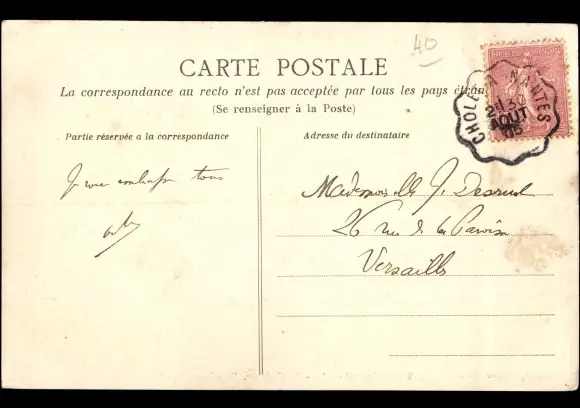 40
CARTE POSTALE
La correspondance au recto n'est pas acceptée par tous les pays étran
(Se renseigner à la Poste)
CHOLET NANTES
AOUT
05
Partie réservée a la correspondance
Adresse du destinataire
Je vous embrasse tous
Mademoiselle J.
26 rue de la Paroisse
Versailles